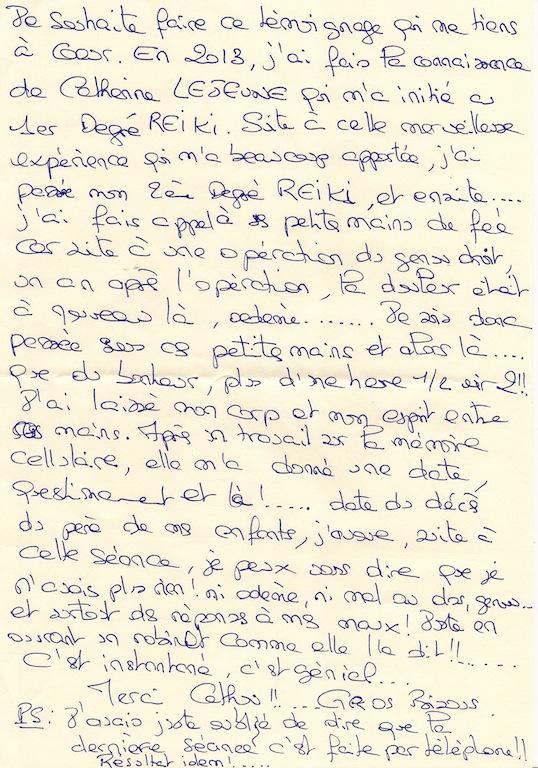 Je souhaite faire ce témoignage qui me tiens
à Coeur. En 2013, j'ai fais la connaissance
de Catherine LEJEUNE qui m'a initié au
1er Degré REIKI. Suite à cette merveilleuse
expérience qui m'a beaucoup apportée, j'ai
passé mon 2ème Degré REIKI, et ensuite....
j'ai fais appel à ses petite mains de feé
car suite à une opération du genou droit,
un an après l'opèration, la douleur était
à nouveau là, oedème........ Je suis donc
passée sous ces petite mains et alors là....
que du bonheur, plus d'une heure 1/2 voir 2!!
J'ai laissé mon corp et mon esprit entre
ses mains. Après un travail sur la mémoire
cellulaire, elle m'a donné une date,
questionnement et là!..... date du décès
du père de mes enfants, j'avoue, suite à
cette séance, je peux vous dire que je
n'avais plus rien! ni oedème, ni mal au dos, genou...
et surtout des réponses à mes maux! Juste en
ouvrant un robinet comme elle l'a dit!!......
C'est instantané, c'est génial...
Merci Cathou!! .... GROS Bizous
PS: J'avais juste oublié de dire que la
dernière séance c'est faite par téléphone!!
Résultat idem!.....